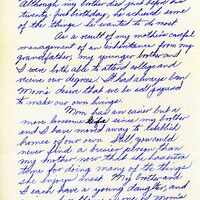 Although my father died just before his
twenty-first birthday, he achieved some of
the things he wanted to do most.
As a result of my mother's careful
management of an inheritance from my
grandfather, my younger brother and
I were both able to attend college and
receive our degrees. It had always been
Mom's desire that we be self-prepared
to make our own livings.
Mom has an easier but a
more lonesome life since my brother
and I have moved away to establish
homes of our own. Still you would
never find a busier person than
my mother now that she has extra
time for doing many of the things
she enjoys most. My brother and
I each have a young daughter, and
Mom's